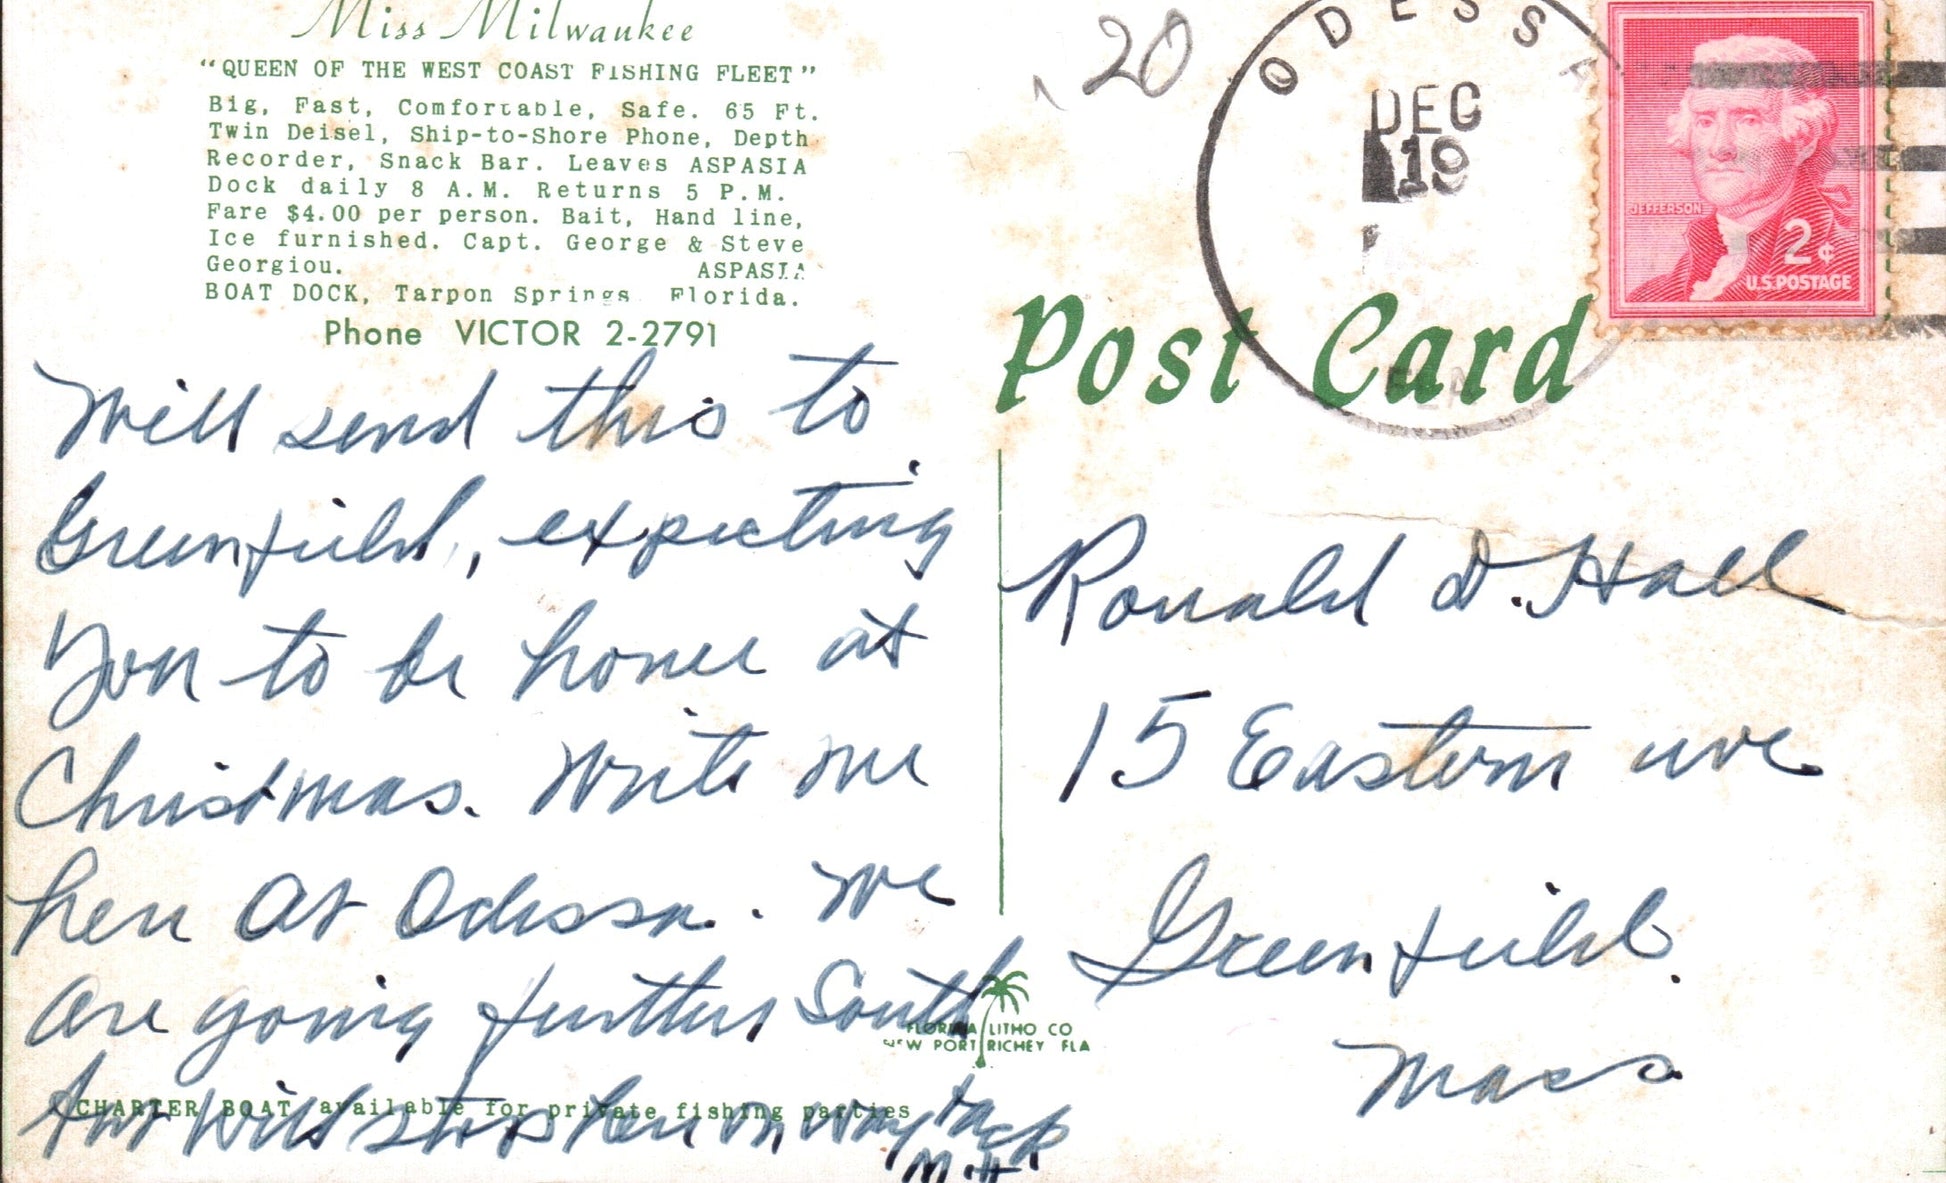 Miss Milwaukee
"QUEEN OF THE WEST COAST FISHING FLEET"
Big, Fast, Comfortable, Safe. 65 Ft.
Twin Deisel, Ship-to-Shore Phone, Depth
Recorder, Snack Bar. Leaves ASPASIA
Dock daily 8 A.M. Returns 5 P.M.
Fare $4.00 per person. Bait, Hand line,
Ice furnished. Capt. George & Steve
Georgiou. ASPASIA
BOAT DOCK, Tarpon Springs Florida.
Phone VICTOR 2-2791
Will send this to
Greenfield, expecting
you to be home at
Christmas. Write me
here at Odessa. We
are going further South
but will stop here on way back
M.H
CHARTER BOAT available for private fishing parties
20
ODESSA
DEC
19
FLA
JEFFERSON
2¢
U.S. POSTAGE
Post Card
Ronald D. Hall
15 Eastern ave
Greenfield.
Mass
FLORIDA LITHO CO
NEW PORT RICHEY FLA